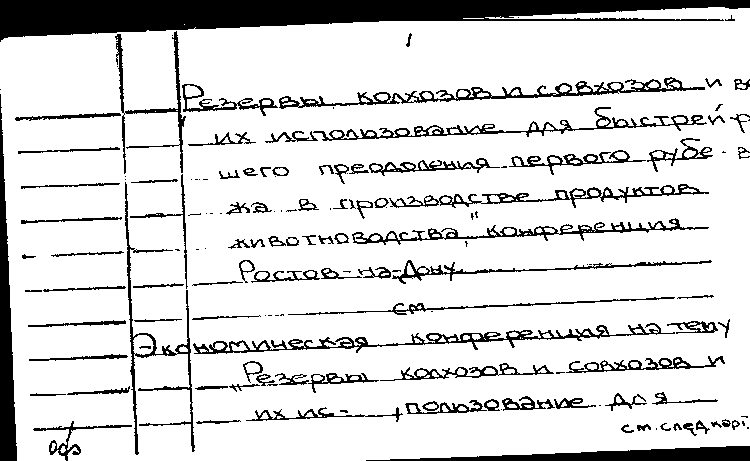 1
Резервы колхозов и совхозов и
их использование для быстрей-
шего преодоления первого рубе-
жа в производстве продуктов
животноводства", конференция
Ростов-на-Дону
см
Экономическая конференция на тему
"Резервы колхозов и совхозов и
их ис- пользование для
см. след карт.